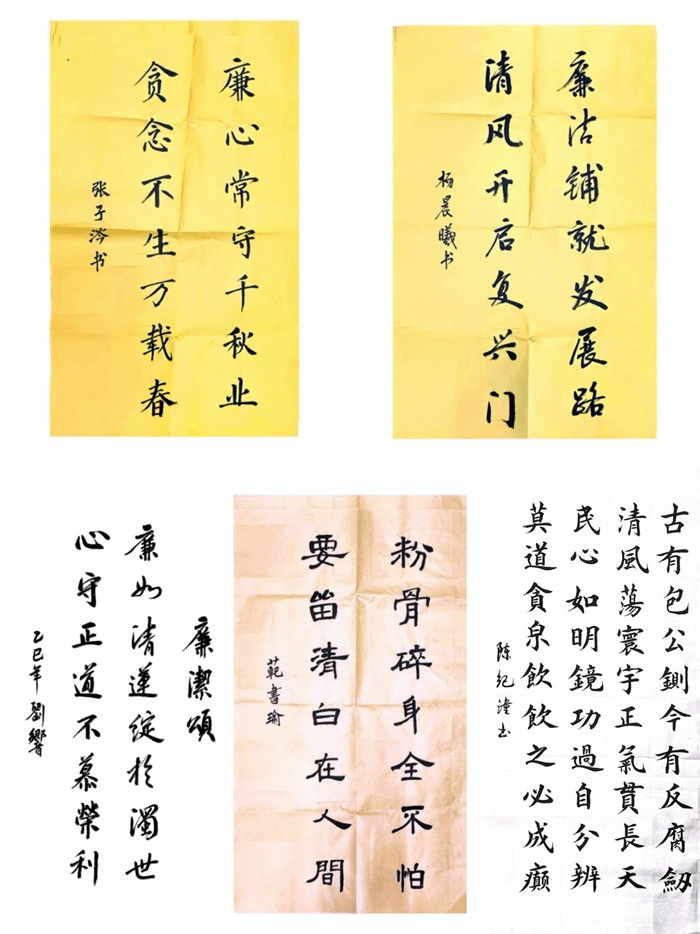 廉心常守千秋业
贪念不生万载春
张子涔书
廉洁铺就发展路
清风开启复兴门
杨晨曦书
廉潔頌
廉如清蓮綻於濁世
心守正道不慕榮利
乙巳年劉響
粉骨碎身全不怕
要留清白在人間
範書瑜
古有包公鍘今有反腐劔
清風蕩寰宇正氣貫長天
民心如明鏡功過自分辨
莫道貪泉飲飲之必成癫
陈纪潼书